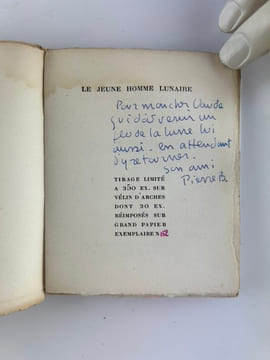 LE JEUNE HOMME LUNAIRE
Pour mon cher Claude
qui doit venir un
peu de la lune lui
aussi. en attendant
d'y retourner.
son ami
Pierre B.
TIRAGE LIMITÉ
A 250 EX. SUR
VÉLIN D'ARCHES
DONT 20 EX.
RÉIMPOSÉS SUR
GRAND PAPIER
EXEMPLAIRE N°